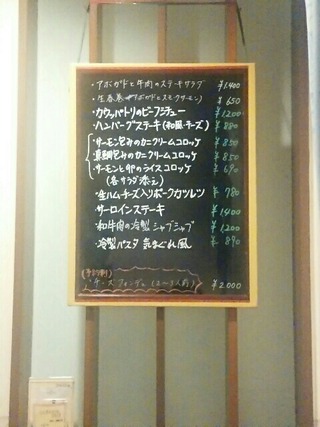 ・アボガドと牛肉のステーキサラダ ¥1400
・生春巻(アボガドとスモークサーモン) ¥650
・カウッパトリのビーフシチュー ¥1200
・ハンバーグステーキ(和風・チーズ) ¥880
・サーモン包みのカニクリームコロッケ ¥850
・真鯛包みのカニクリームコロッケ ¥850
・サーモンと卵のライスコロッケ ¥690
(各サラダ添え)
・生ハムチーズ入りポークカツレツ ¥780
・サーロインステーキ ¥1400
・和牛肉の冷製シャブシャブ ¥1200
・冷製パスタ 気まぐれ風 ¥890
(予約制)
・チーズフォンデュ(2〜3人前) ¥2000